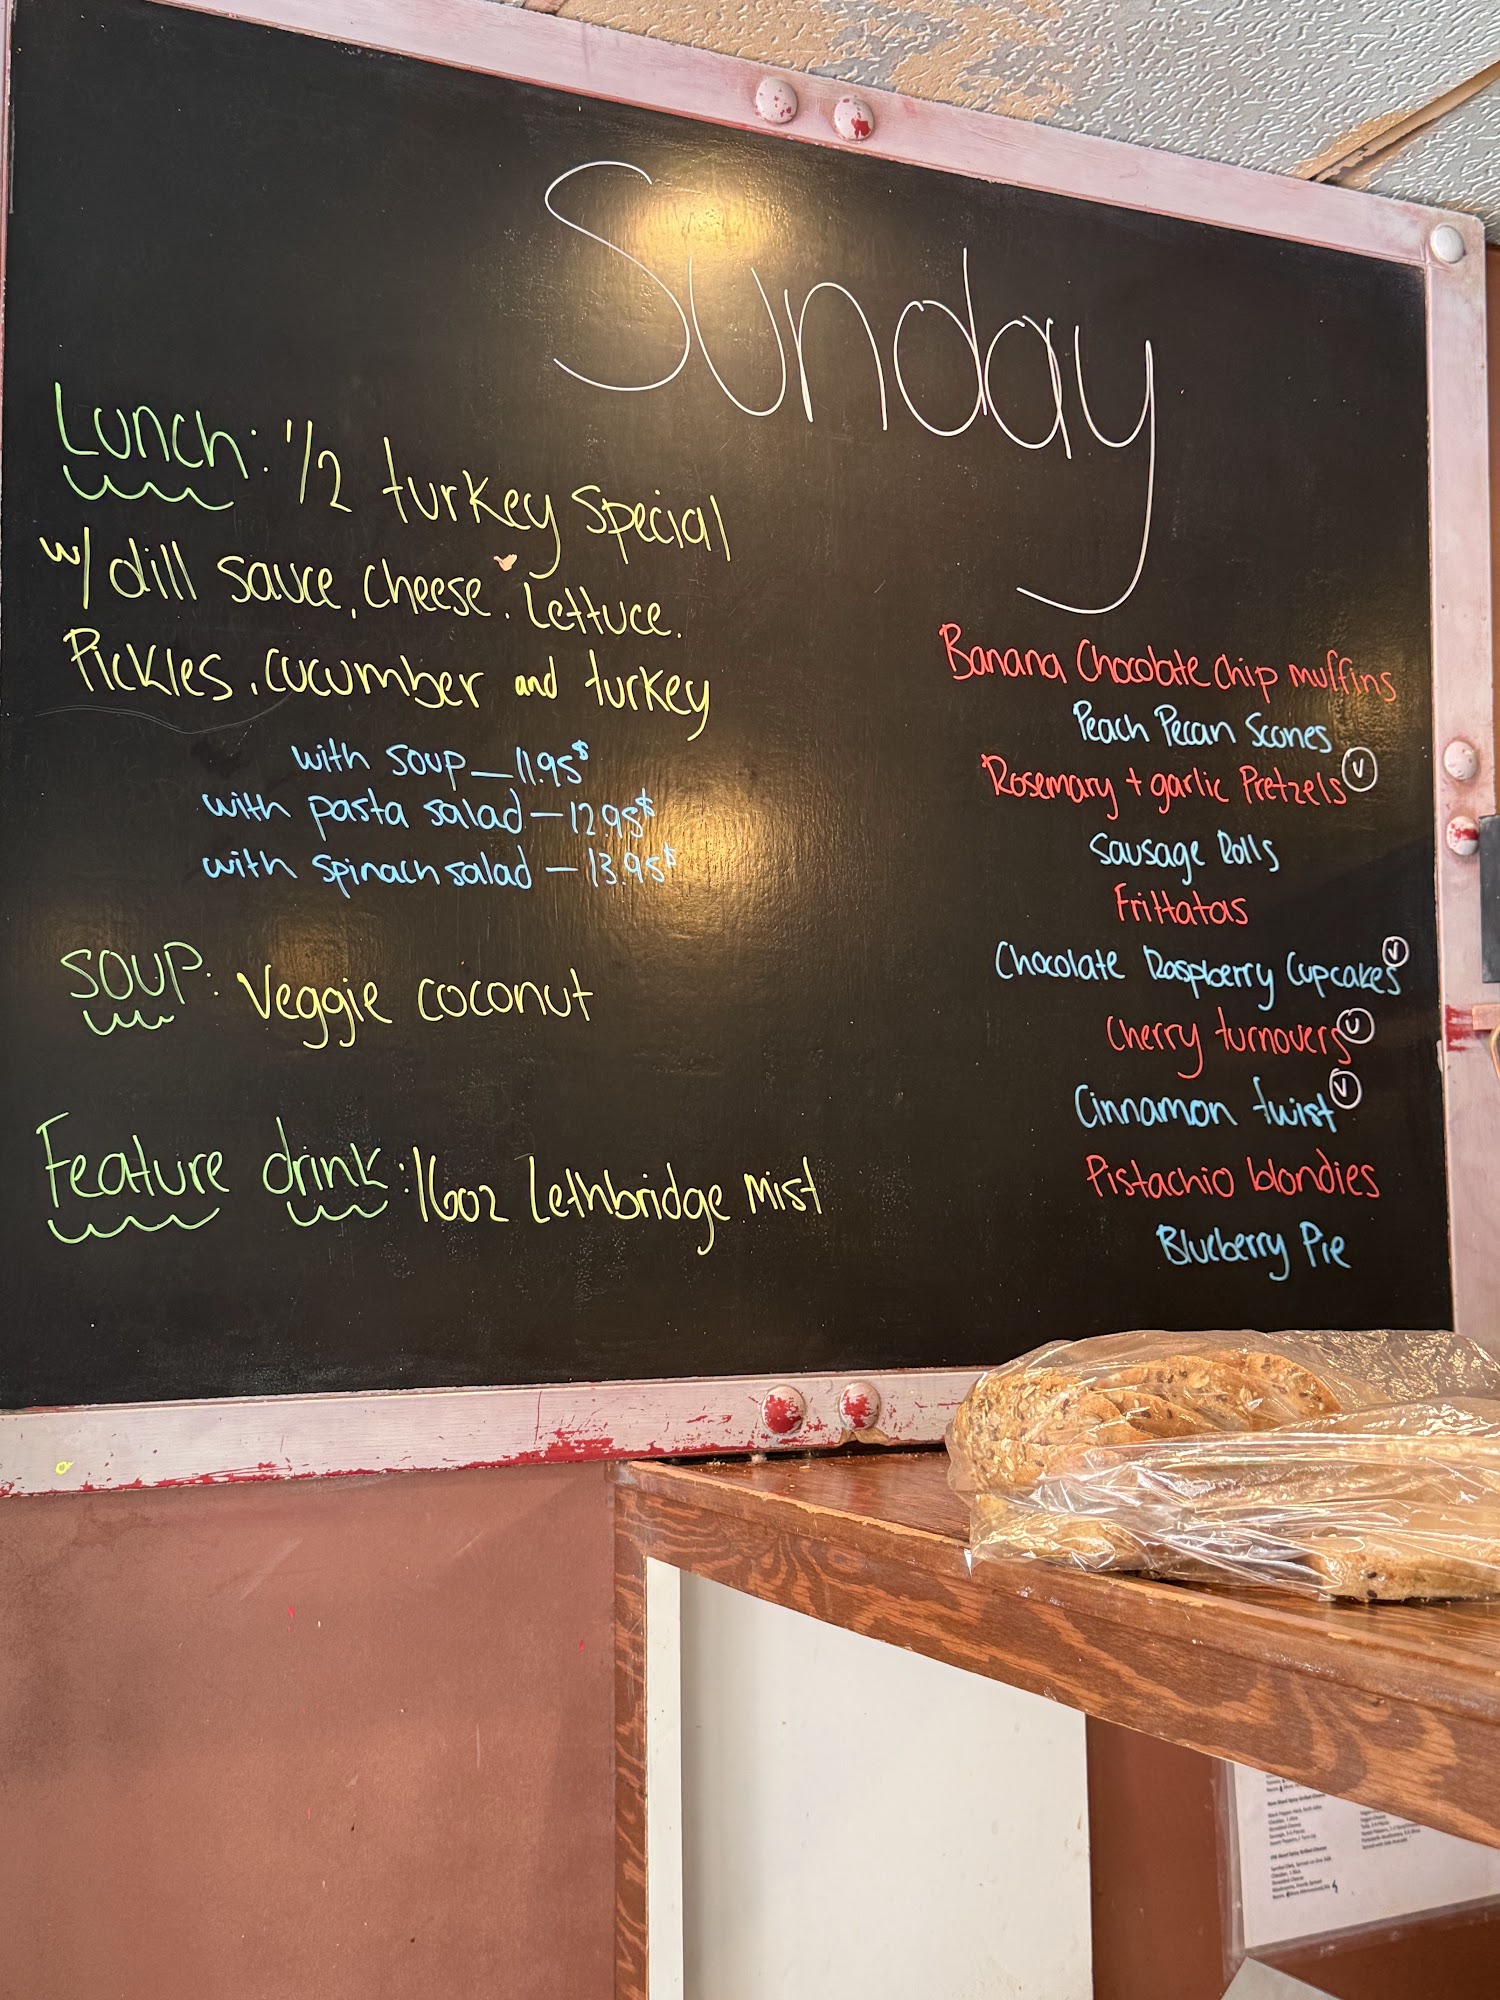 Sunday
Lunch: 1/2 turkey special
w/ dill sauce, cheese, lettuce,
Pickles, cucumber and turkey
with soup — 11.95$
with pasta salad — 12.95$
with spinach salad — 13.95$
SOUP: Veggie coconut
Feature drink: 16oz Lethbridge Mist
Banana Chocolate Chip muffins
Peach Pecan Scones
Rosemary + garlic Pretzels V
Sausage Rolls
Frittatas
Chocolate Raspberry Cupcakes V
Cherry turnovers V
Cinnamon twist V
Pistachio blondies
Blueberry Pie